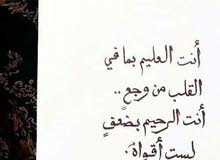 أنت العليم بما في
القلب من وجعٍ ..
أنت الرحيم بضعفٍ
لست أقواهُ .